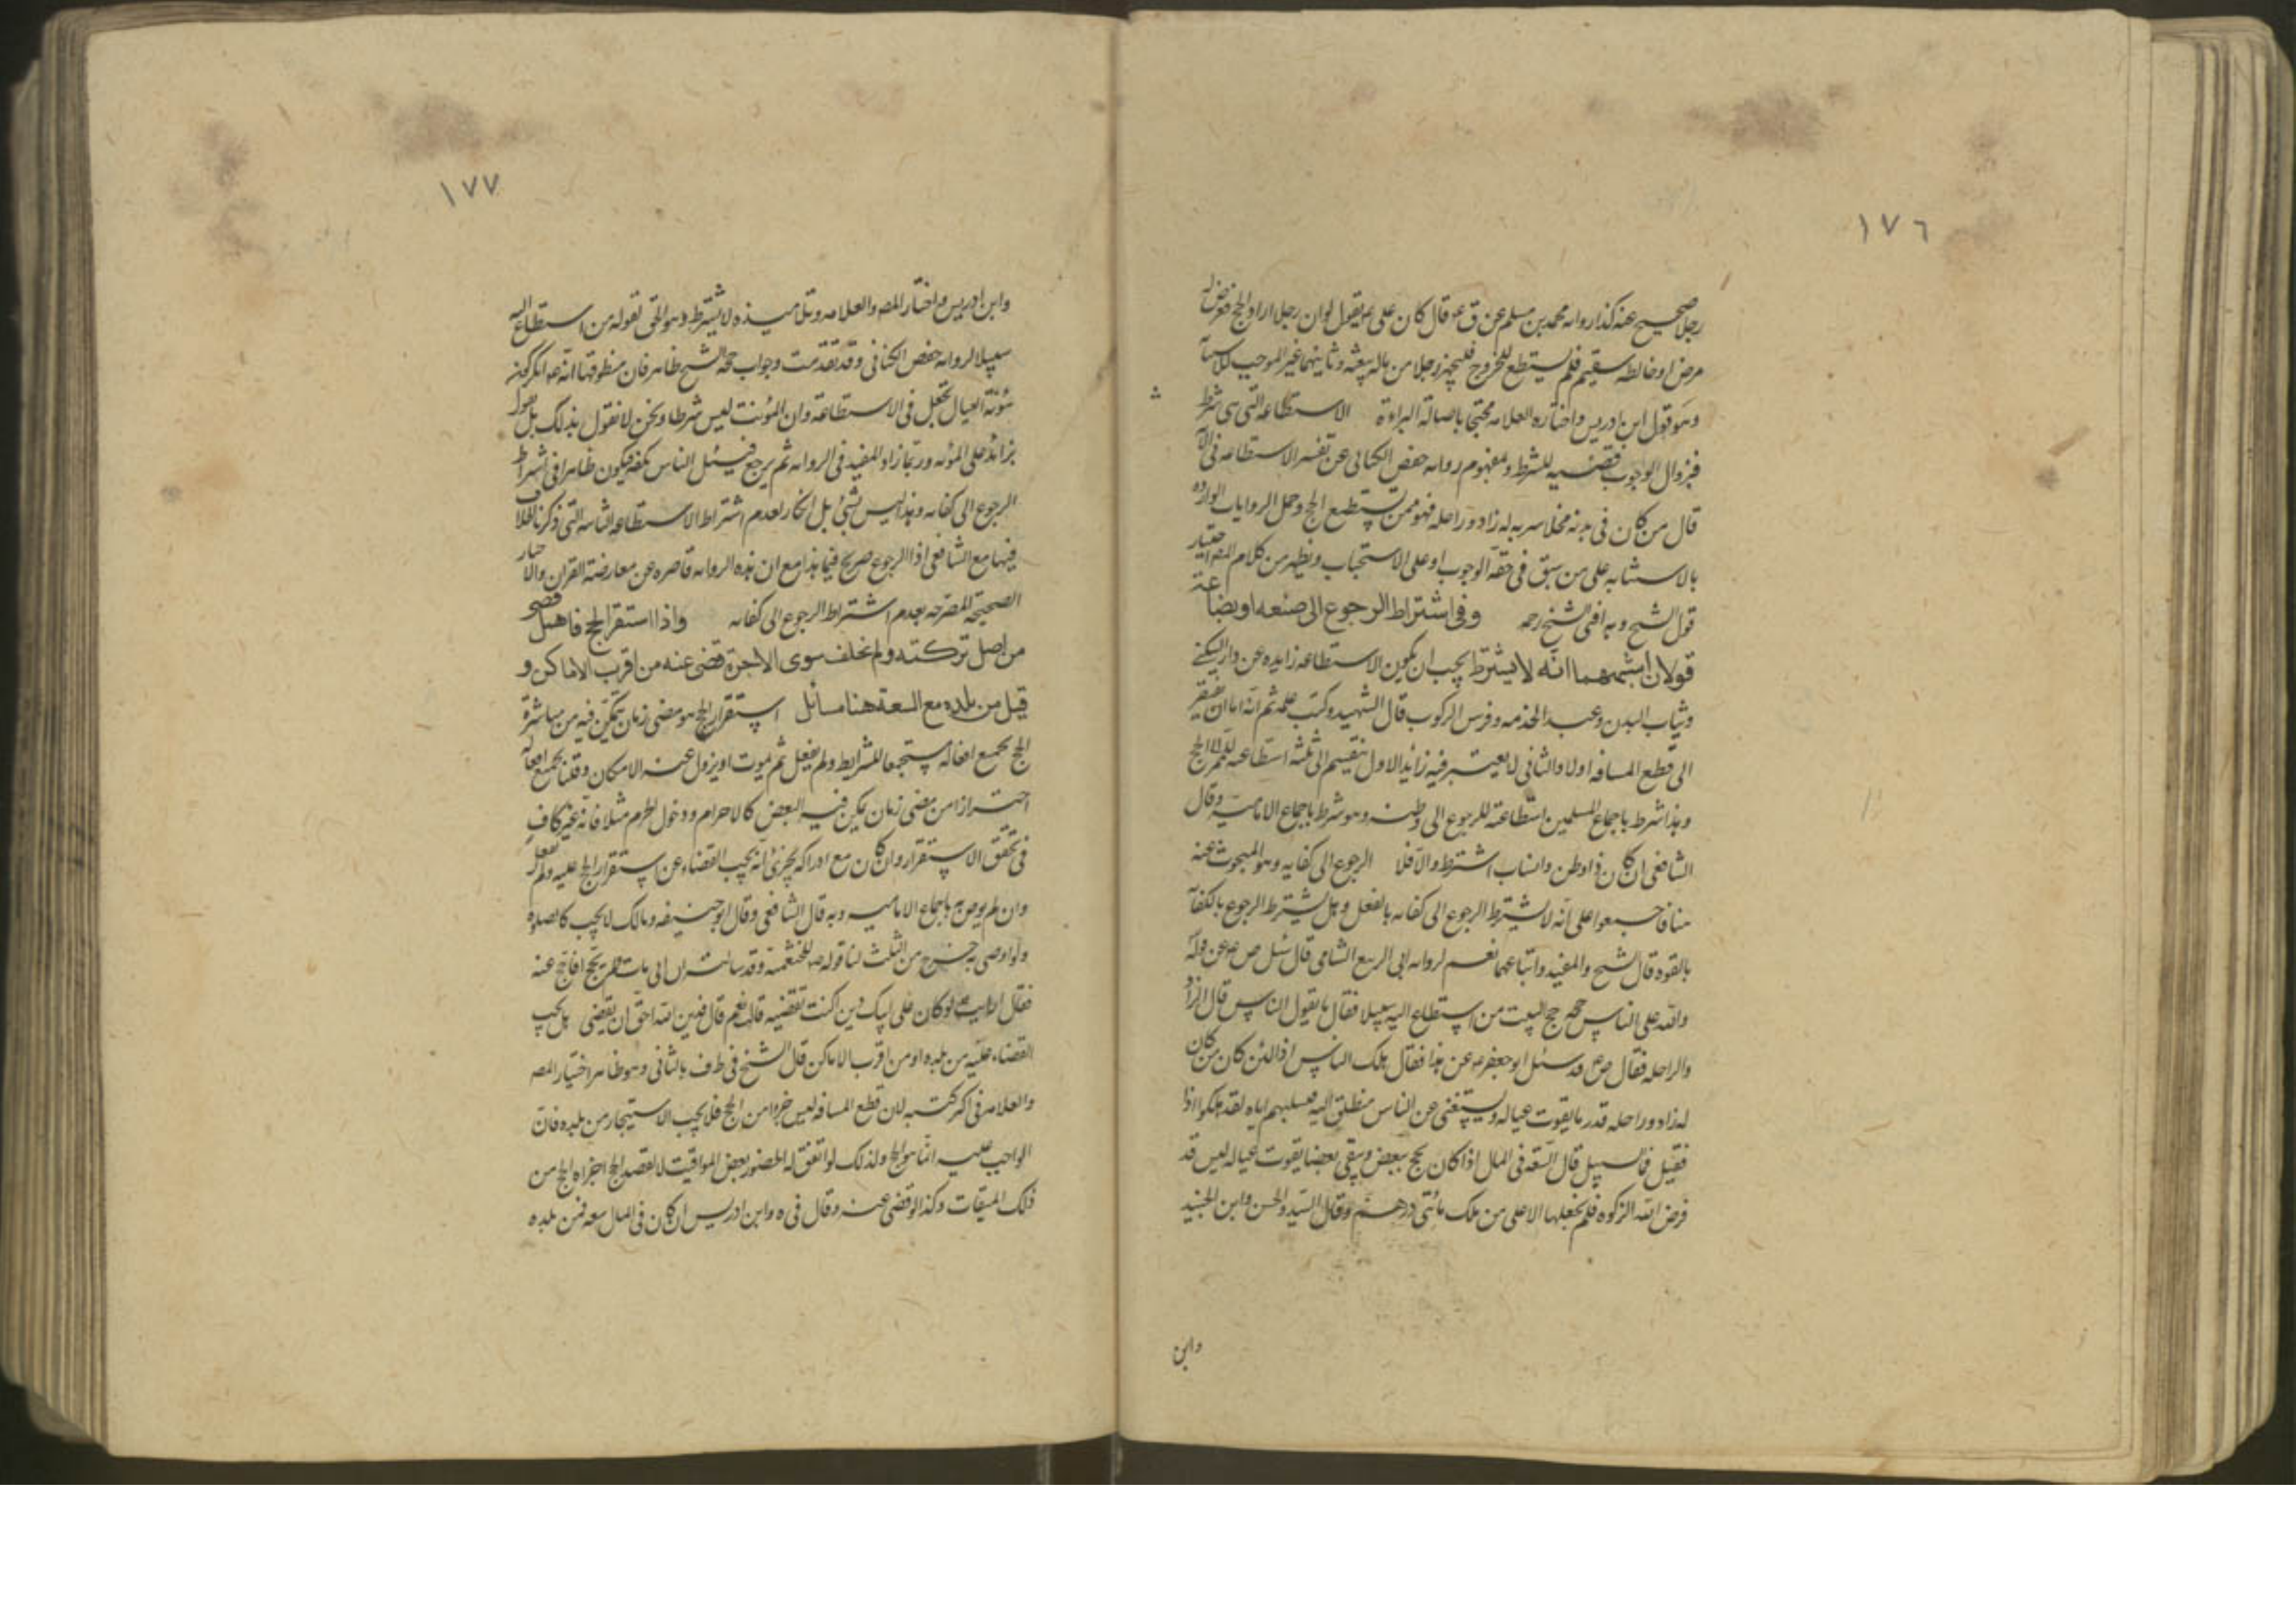 ١٧٦
رجلا صحيح عنه كذا رواه محمد بن مسلم عن ق ع قال كان على ع يقول لو ان رجلا اراد الحج فعرض له
مرض او خالطه سقيم فلم يستطع الخروج فليجهز رجلا من ماله يبعثه وثانيهما غير الموجب
وهو قول ابن ادريس واختاره العلامه محتجا باصالة البراءة الاستطاعه التى هى شرط
فبزوال الوجوب قضيه للشرط ولمفهوم روايه حفص الكناني عن تفسير الاستطاعه فى
قال من كان فى بدنه مخلا سربه له زاد وراحله فهو ممن يستطيع الحج وحمل الروايات الوارده
بالاستنابه على من سبق فى حقه الوجوب او على الاستحباب ويظهر من كلام المصـ اختيار
قول الشيخ وبه افتى الشيخ رحمه وفى اشتراط الرجوع الى صنعه او بضاعة
قولان اشبههما انه لا يشترط يجب ان يكون الاستطاعه زايده عن دار السكنى
وثياب البدن وعبد الخدمه وفرس الركوب قال الشهيد وكتب علمه ثم انه اما ان يفتقر
الى قطع المسافه اولا والثانى لا يعتبر فيه زائد الاول ينقسم الى ثلثه استطاعه
وهذا شرط باجماع المسلمين استطاعة للرجوع الى وطنه وهو شرط باجماع الاماميه وقال
الشافعى ان كان ذا وطن وانساب اشترط والا فلا الرجوع الى كفايه وهو المبحوث عنه
هنا فاجمعوا على انه لا يشترط الرجوع الى كفايه بالفعل وهل يشترط الرجوع بالكفآ
بالقوه قال الشيخ والمفيد واتباعهما نعم لروايه ابى الربيع الشامى قال سئل ص ع عن قوله
ولله على الناس حج البيت من استطاع اليه سبيلا فقال ما يقول الناس قال الزاد
والراحله فقال ص ع قد سئل ابو جعفر ع عن هذا فقال هلك الناس اذا لئن كان من كان
له زاد وراحله قدر ما يقوت عياله ويستغنى عن الناس ينطلق اليه فيسلبهم اياه لقد هلكوا اذا
فقيل فما السبيل قال السعه فى المال اذا كان يحج ببعض ويبقى بعضا يقوت عياله ليس قد
فرض الله الزكوه فلم يجعلها الا على من ملك مائتى درهم وقال السيد والحسن وابن الجنيد
وابن
١٧٧
وابن ادريس واختار المصـ والعلامه وتلاميذه لا يشترط وهو الحق لقوله من استطاع اليه
سبيلا لروايه حفص الكنانى وقد تقدمت وجواب حجه الشيخ ظاهر فان منطوقها
مؤنة العيال تجعل فى الاستطاعة وان المؤنت ليس شرطا ونحن لا نقول بذلك بل نقول
بزائد على المؤنه وربما زاد المفيد فى الروايه ثم يرجع فيسئل الناس بكفه فيكون ظاهرا فى اشتراط
الرجوع الى كفايه وهذا ليس بشئ بل انكار لعدم اشتراط الاستطاعه الثانيه التى ذكرنا الخلاف
فيها مع الشافعى اذ الرجوع صريح فيها هذا مع ان هذه الروايه قاصره عن معارضة القران والاخبار
الصحيحة المصرحه بعدم اشتراط الرجوع الى كفايه واذا استقر الحج فاهمل قضى
من اصل تركته ولو لم يخلف سوى الاجرة قضى عنه من اقرب الاماكن و
قيل من بلده مع السعة هنا مسائل استقرار الحج هو مضى زمان يتمكن فيه من مباشرة
الحج بجميع افعاله مستجمعا للشرايط ولم يفعل ثم يموت او يزول عنه الامكان وقلنا بجميع افعاله
احترازا من مضى زمان يمكن فيه البعض كالاحرام ودخول الحرم مثلا فانه غير كاف
فى تحقق الاستقرار وان كان مع ادراكه يجزئ انه يجب القضاء عن استقرار الحج عليه ولم يفعل
وان لم يوص به باجماع الاماميه وبه قال الشافعى وقال ابو حنيفه ومالك لا يجب كالصلوة
ولو اوصى به خرج من الثلث لنا قوله ص للخثعميه وقد سالته ان ابى مات ولم يحج افاحج عنه
فقال ارايت لو كان على ابيك دين اكنت تقضيه قالت نعم قال فدين الله احق ان يقضى هل يجب
القضاء عليه من بلده او من اقرب الاماكن قال الشيخ فى ط ف بالثانى وهو ظاهر اختيار المصـ
والعلامه فى اكثر كتبه لان قطع المسافه ليس جزوا من الحج فلا يجب الاستيجار من بلده فان
الواجب عليه انما هو الحج ولذلك لو اتفق له الحضور بعض المواقيت لا لقصد الحج اجزاه الحج من
ذلك الميقات وكذا لو قضى عنه وقال فى ه وابن ادريس ان كان فى المال سعه فمن بلده